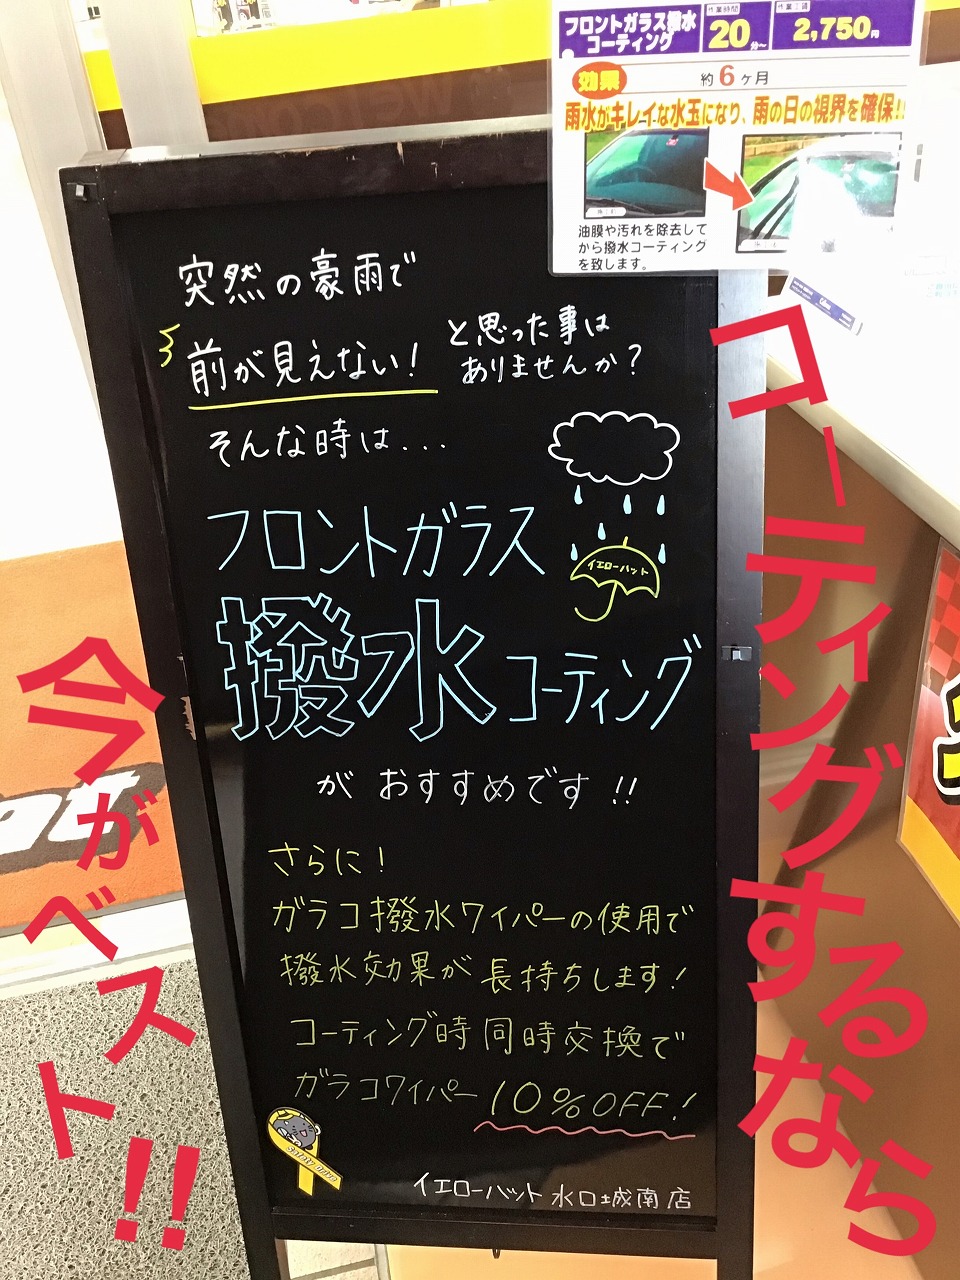 フロントガラス撥水
コーティング
作業時間
20分~
作業工賃
2,750円
効果
約6ヶ月
雨水がキレイな水玉になり、雨の日の視界を確保!!
油膜や汚れを除去して
から撥水コーティング
を致します。
突然の豪雨で
前が見えない!
と思った事は
ありませんか?
そんな時は...
フロントガラス
撥水コーティング
イエローハット
がおすすめです!!
さらに!
ガラコ撥水ワイパーの使用で
撥水効果が長持ちします!
コーティング時同時交換で
ガラコワイパー10%OFF!
safety drive
イエローハット水口城南店
コーティングするなら
今がベスト!!